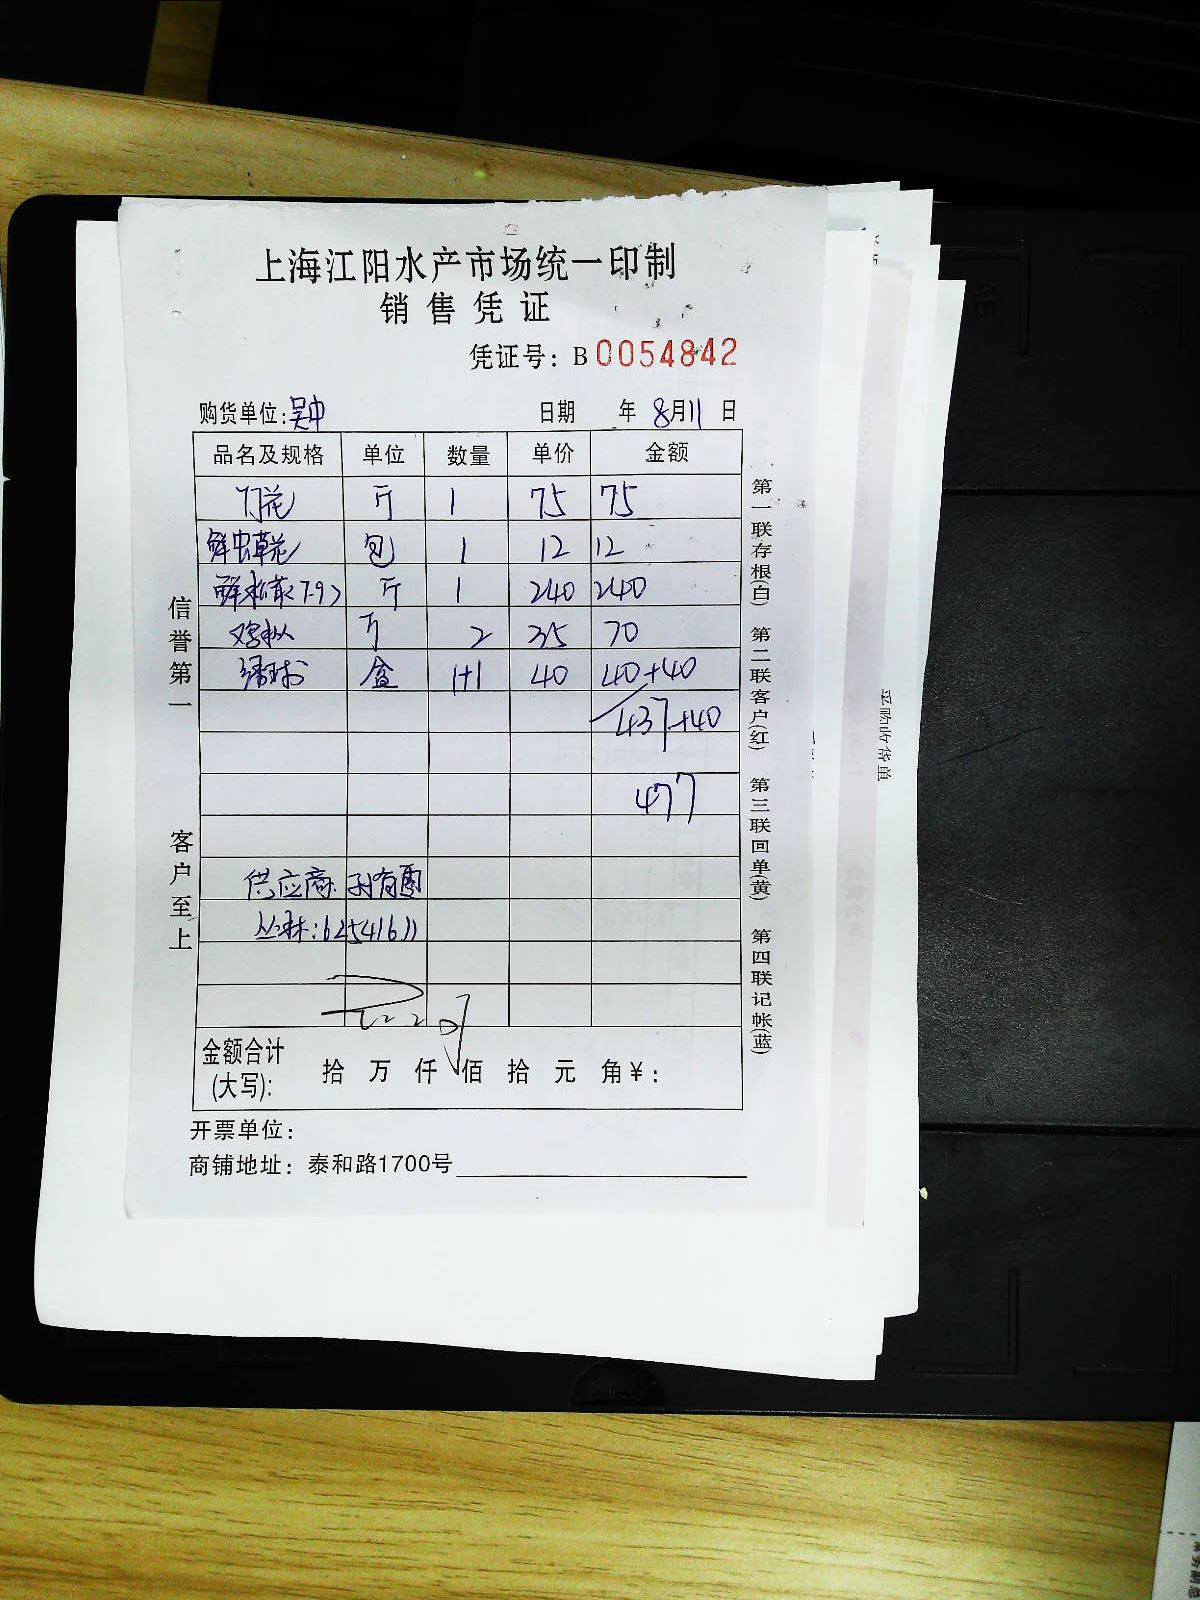 上海江阳水产市场统一印制
销售凭证
凭证号：B0054842
购货单位：吴中 日期 年 8月11日
品名及规格 单位 数量 单价 金额
竹花 斤 1 75 75
鲜虫草花 包 1 12 12
鲜松茸(7-9) 斤 1 240 240
鸡枞 斤 2 35 70
绣球 盒 1+1 40 40+40
437+40
477
供应商：孙有
丛林：62541611
金额合计
(大写)： 拾 万 仟 佰 拾 元 角 ￥：
开票单位：
商铺地址：泰和路1700号
信誉第一 客户至上
第一联存根(白) 第二联客户(红) 第三联回单(黄) 第四联记帐(蓝)
采购收货单